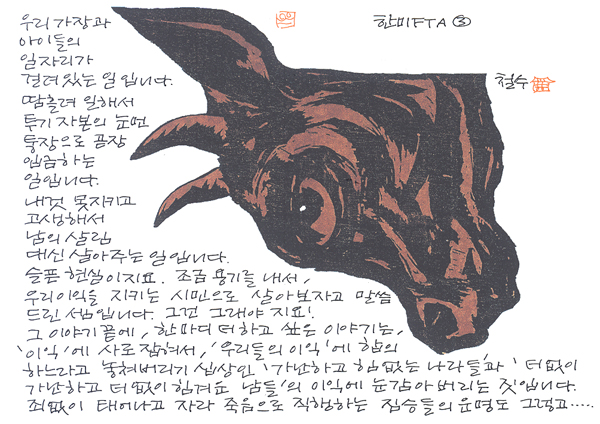 한미FTA ③
철수
우리 가장과
아이들의
일자리가
걸려있는 일입니다.
땀흘려 일해서
투기자본의 눈먼
통장으로 곧장
입금하는
일입니다.
내것 못지키고
고생해서
남의 살림
대신 살아주는 일입니다.
슬픈 현실이지요. 조금 용기를 내서,
우리이익을 지키는 시민으로 살아보자고 말씀
드린 셈입니다. 그건 그래야 지요!
그 이야기 끝에, 한마디 더 하고 싶은 이야기는,
'이익'에 사로잡혀서, '우리들의 이익'에 합의
하느라고 놓쳐버리기 십상인 '가난하고 힘없는 나라들'과 '더없이
가난하고 더없이 힘겨운 남들'의 이익에 눈감아버리는 짓입니다.
죄없이 태어나고 자라 죽음으로 직행하는 짐승들의 운명도 그렇고.....